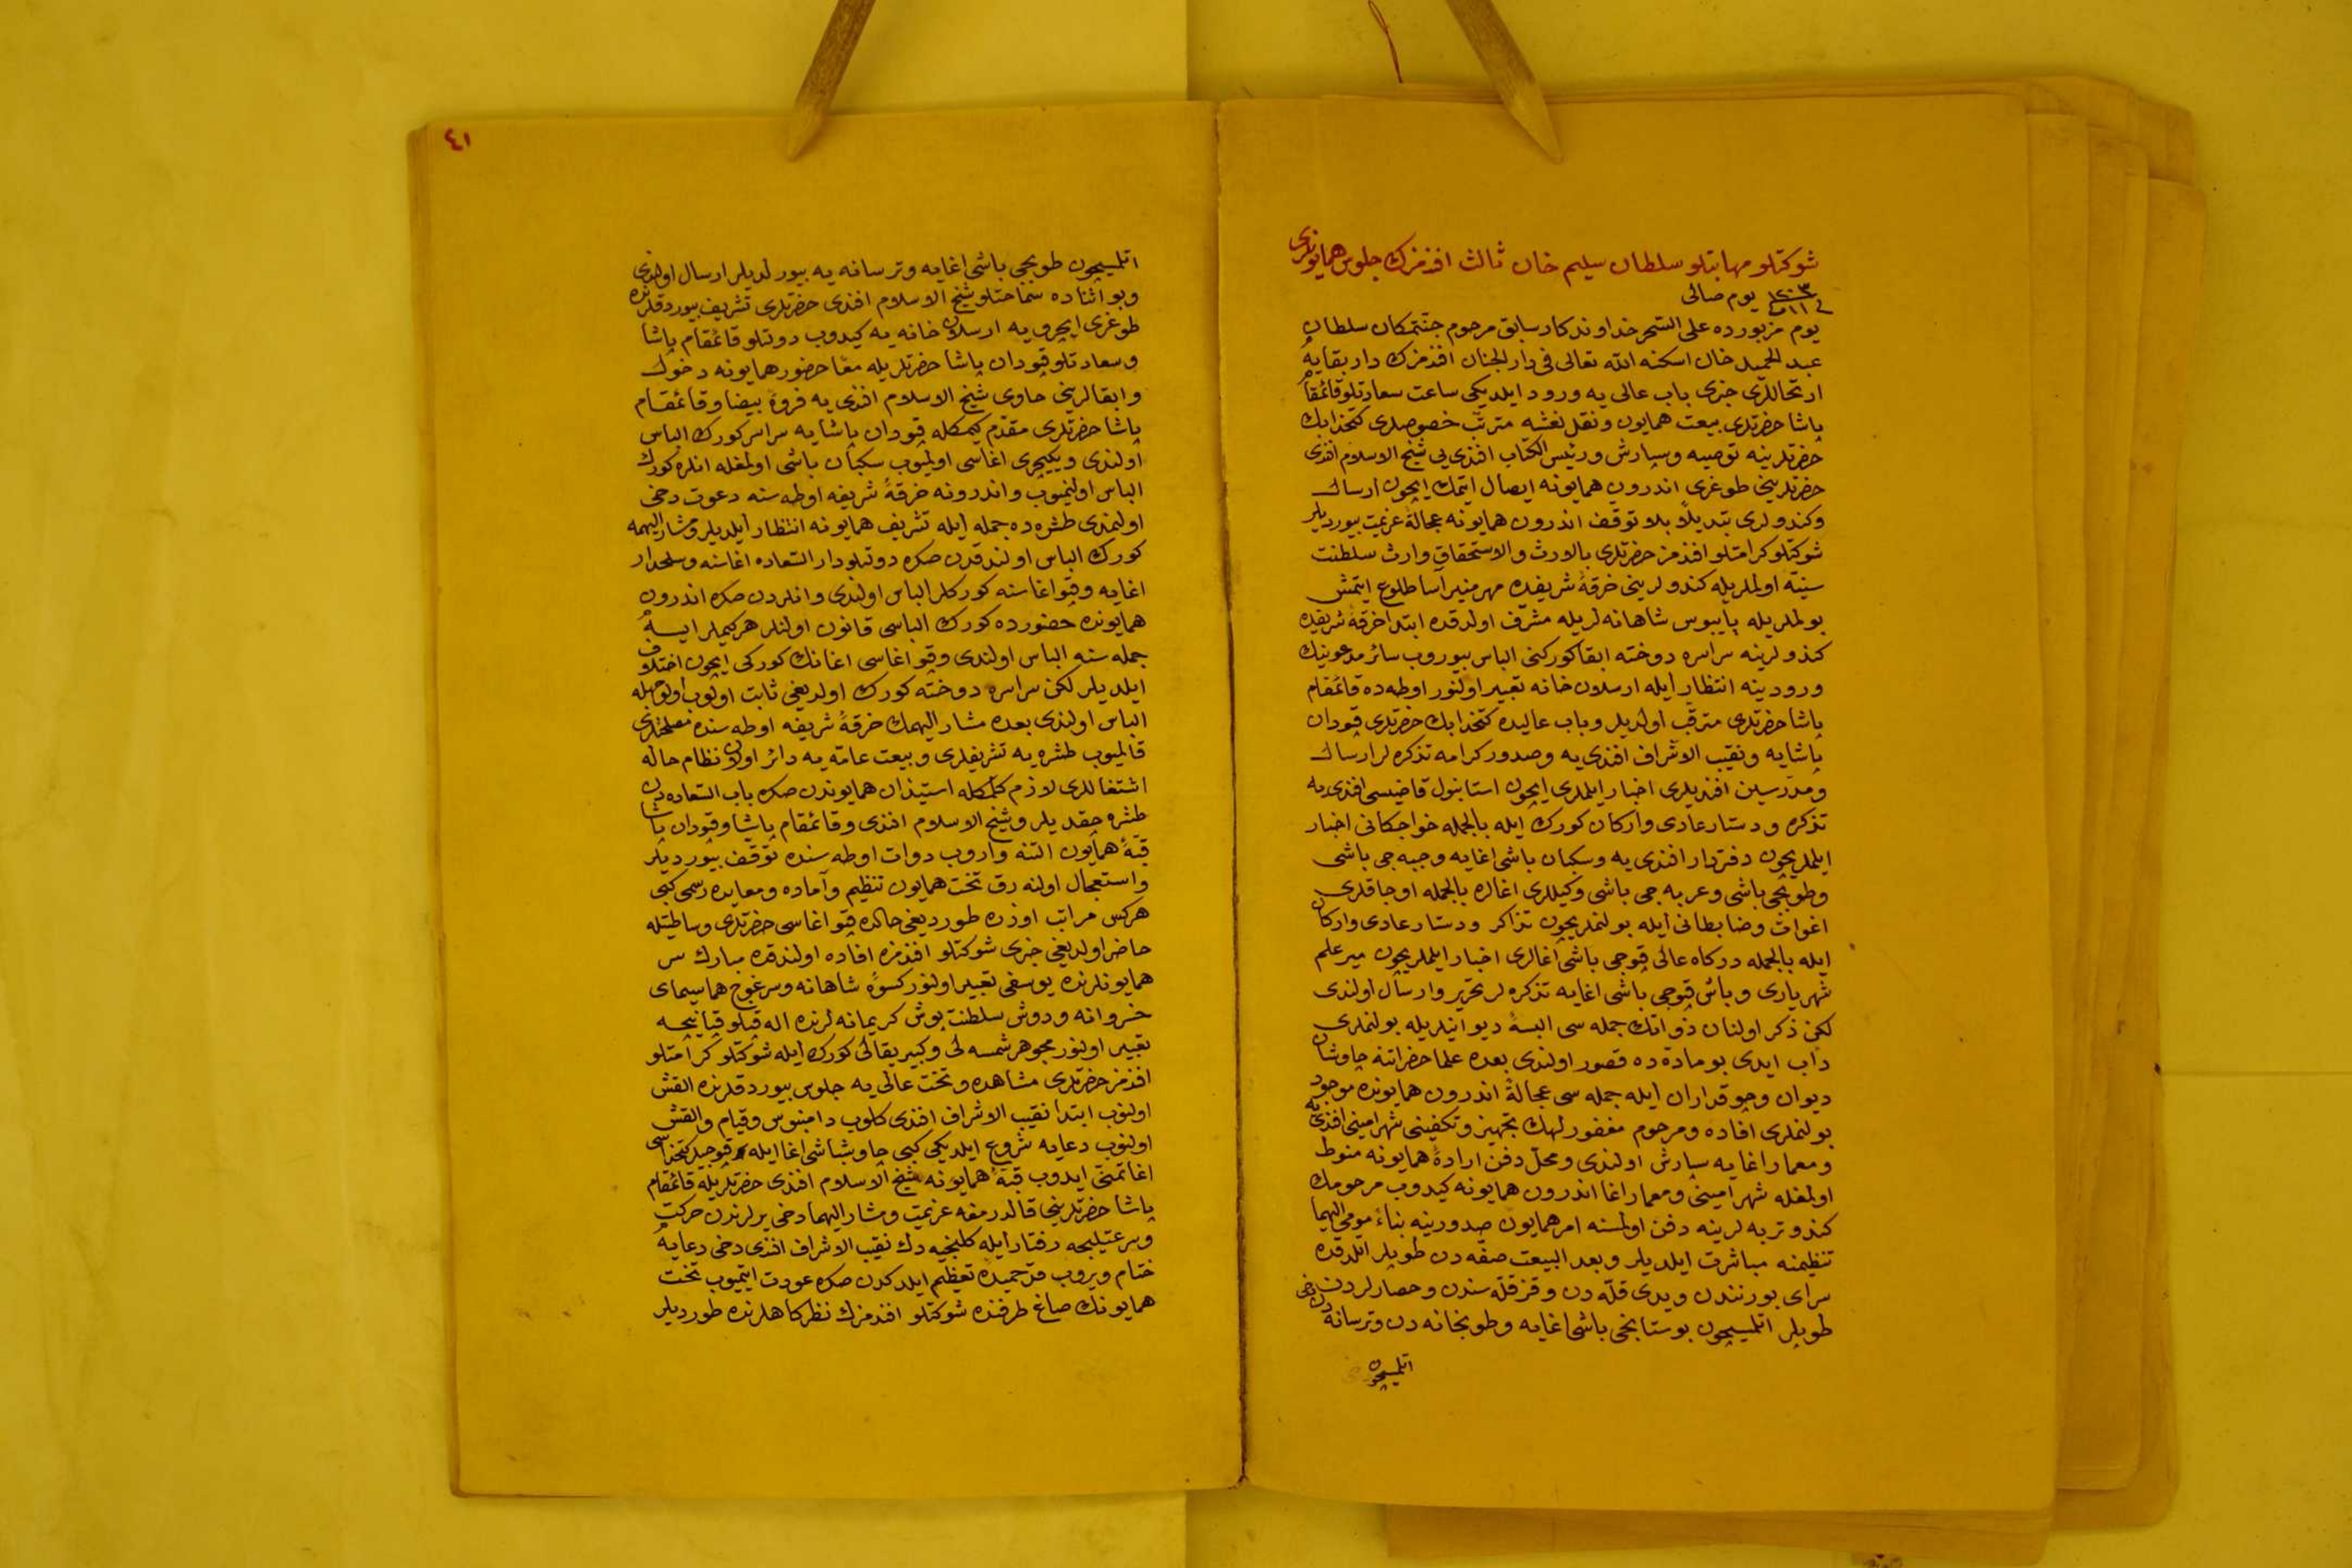 شوكتلو مهابتلو سلطان سليم خان ثالث افندمزك جلوس همايونلرى
يوم صالى ١١ ١٢٠٣
يوم مزبورده على السحر خداوندكار سابق مرحوم جنتمكان سلطان
عبد الحميد خان اسكنه الله تعالى فى دار الجنان افندمزك دار بقايه
ارتحاللرى خبرى باب عالى يه ورود ايلديكى ساعت سعادتلو قائمقام
پاشا حضرتلرى بيعت همايون ونقل نعشه مترتب خصوصلرى كتخدا بك
حضرتلرينه توصيه وسپارش ورئيس الكتاب افندى يى شيخ الاسلام افندى
حضرتلرينى طوغرى اندرون همايونه ايصال ايتمك ايچون ارسال
وكندولرى تبديلاً بلا توقف اندرون همايونه عجالةً عزيمت بيورديلر
شوكتلو كرامتلو افندمز حضرتلرى بالارث والاستحقاق وارث سلطنت
سنيه اولملريله كندولرينى خرقۀ شريفده مهر منير آسا طلوع ايتمش
بولملريله پايبوس شاهانه لريله مشرف اولدقده ابتدا خرقۀ شريفده
كندولرينه سراسره دوخته ابقا كوركنى الباس بيوروب سائر مدعوينك
ورودينه انتظار ايله ارسلان خانه تعبير اولنور اوطه ده قائمقام
پاشا حضرتلرى مترقب اولديلر وباب عاليده كتخدا بك حضرتلرى قپودان
پاشايه ونقيب الاشراف افندى يه وصدور كرامه تذكره لر ارسال
ومدرسين افنديلرى اخبار ايلملرى ايچون استانبول قاضيسى افندى يه
تذكره ودستار عادى واركان كورك ايله بالجمله خواجكانى اخبار
ايلمريچون دفتردار افندى يه وسكبان باشى اغايه وجبه جى باشى
وطوپچى باشى وعربه جى باشى وكيللرى اغالره بالجمله اوجاقلرى
اغوات وضابطانى ايله بولنملريچون تذاكر ودستار عادى واركان
ايله بالجمله دركاه عالى قپوجى باشى اغالرى اخبار ايلملريچون مير علم
شهريارى وباش قپوجى باشى اغايه تذكره لر تحرير وارسال اولندى
لكن ذكر اولنان ذواتك جمله سى البسۀ ديوانيلريله بولنملرى
داب ايدى بو ماده ده قصور اولندى بعده علما حضراتنه چاوشان
ديوان وچوقداران ايله جمله سى عجالةً اندرون همايونده موجود
بولنملرى افاده ومرحوم مغفور لهك تجهيز وتكفينى شهر امينى افندى يه
ومعمار اغايه سپارش اولندى ومحل دفن ارادۀ همايونه منوط
اولمغله شهر امينى ومعمار اغا اندرون همايونه كيدوب مرحومك
كندو تربه لرينه دفن اولمسنه امر همايون صدورينه بناءً مومى اليهما
تنظيمنه مباشرت ايلديلر وبعد البيعت صفه دن طوپلر اتلدقده
سراى بورنندن ويدى قله دن وقز قله سندن وحصارلردن دخى
طوپلر اتلمسيچون بوستانجى باشى اغايه وطوپخانه دن وترسانه دن
اتلمسيچون
٤١
اتلمسيچون طوپچى باشى اغايه وترسانه يه بيورلديلر ارسال اولندى
وبو اثناده سماحتلو شيخ الاسلام افندى حضرتلرى تشريف بيوردقلرنده
طوغرى ايچرويه ارسلان خانه يه كيدوب دولتلو قائمقام پاشا
وسعادتلو قپودان پاشا حضرتلريله معاً حضور همايونه دخول
وابقالرينى حاوى شيخ الاسلام افندى يه فروۀ بيضا وقائمقام
پاشا حضرتلرى مقدم كيمكله قپودان پاشايه سراسر كورك الباس
اولندى ويكيچرى اغاسى اولميوب سكبان باشى اولمغله انلره كورك
الباس اولنميوب واندرونه خرقۀ شريفه اوطه سنه دعوت دخى
اولنمدى طشره ده جمله ايله تشريف همايونه انتظار ايلديلر ومشار اليهمه
كورك الباس اولندقدن صكره دولتلو دار السعاده اغاسنه وسلحدار
اغايه وقپو اغاسنه كوركلر الباس اولندى وانلردن صكره اندرون
همايونده حضورده كورك الباسى قانون اولنلر هر كيملر ايسه
جمله سنه الباس اولندى وقپو اغاسى اغانك كوركى ايچون اختلاف
ايلديلر لكن سراسره دوخته كورك اولديغى ثابت اولوب اولوجهله
الباس اولندى بعده مشار اليهمك خرقۀ شريفه اوطه سنده مصلحتلرى
قالميوب طشره يه تشريفلرى وبيعت عامه يه دائر اولان نظام حاله
اشتغاللرى لازم كلمكله استيذان همايوندن صكره باب السعاده دن
طشره چقديلر وشيخ الاسلام افندى وقائمقام پاشا وقپودان پاشا
قبۀ همايون التنه واروب دوات اوطه سنده توقف بيورديلر
واستعجال اولنه رق تخت همايون تنظيم وآماده ومعايده رسمى كبى
هركس مراتب اوزره طورديغى حالده قپو اغاسى حضرتلرى وساطتيله
حاضر اولديغى خبرى شوكتلو افندمزه افاده اولندقده مبارك سر
همايونلرنده يوسفى تعبير اولنور كسوۀ شاهانه وسرغوج هما سيماى
خسروانه ودوش سلطنت پوش كريمانه لرنده اله قپلو قپانيچه
تعبير اولنور مجوهر شمسه لى وكبير يقالى كورك ايله شوكتلو كرامتلو
افندمز حضرتلرى مشاهده وتخت عالى يه جلوس بيوردقلرنده القش
اولنوب ابتدا نقيب الاشراف افندى كلوب دامنبوس وقيام والقش
اولنوب دعايه شروع ايلديكى كبى چاوشباشى اغا ايله قپوجيلر كتخداسى
اغا تمنى ايدوب قبۀ همايونه شيخ الاسلام افندى حضرتلريله قائمقام
پاشا حضرتلرينى قالدرمغه عزيمت ومشار اليهما دخى يرلرندن حركت
وسرعتليجه رفتار ايله كلنجيه دك نقيب الاشراف افندى دخى دعايه
ختام ويروب قد خميده تعظيم ايلدكدن صكره عودت ايتميوب تخت
همايونك صاغ طرفنده شوكتلو افندمزك نظركاهلرنده طورديلر